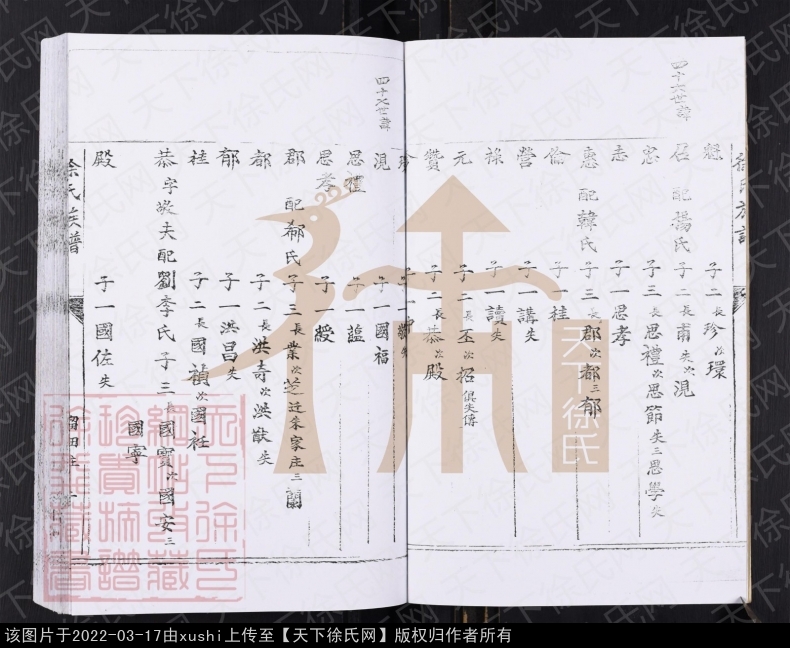 徐氏族譜
四十六世諱
縣 子二長珍次環
召 配楊氏 子二長甫失次混
憲 子三長思禮次思節失三思學失
志 子一思孝
惠 配韓氏 子三長郡次都三郁
倫 子一桂
營 子一講失
祿 子一讀失
元 子二長丕次招俱失傳
贊 子二長恭次殿
四十七世諱
珍
混 子一國福
思禮 子一謐
思孝 子一綬
郡 配郗氏 子三長業次芝迁朱家庄三蘭
都 子二長洪壽次洪猷失
郁 子一洪昌失
桂 子二長國禎次國社
恭 字敬夫配劉李氏 子三長國寶次國安三國寧
殿 子一國佐失
徐氏族譜
天下徐氏
天下徐氏网
该图片于2022-03-17由xushi上传至【天下徐氏网】版权归作者所有